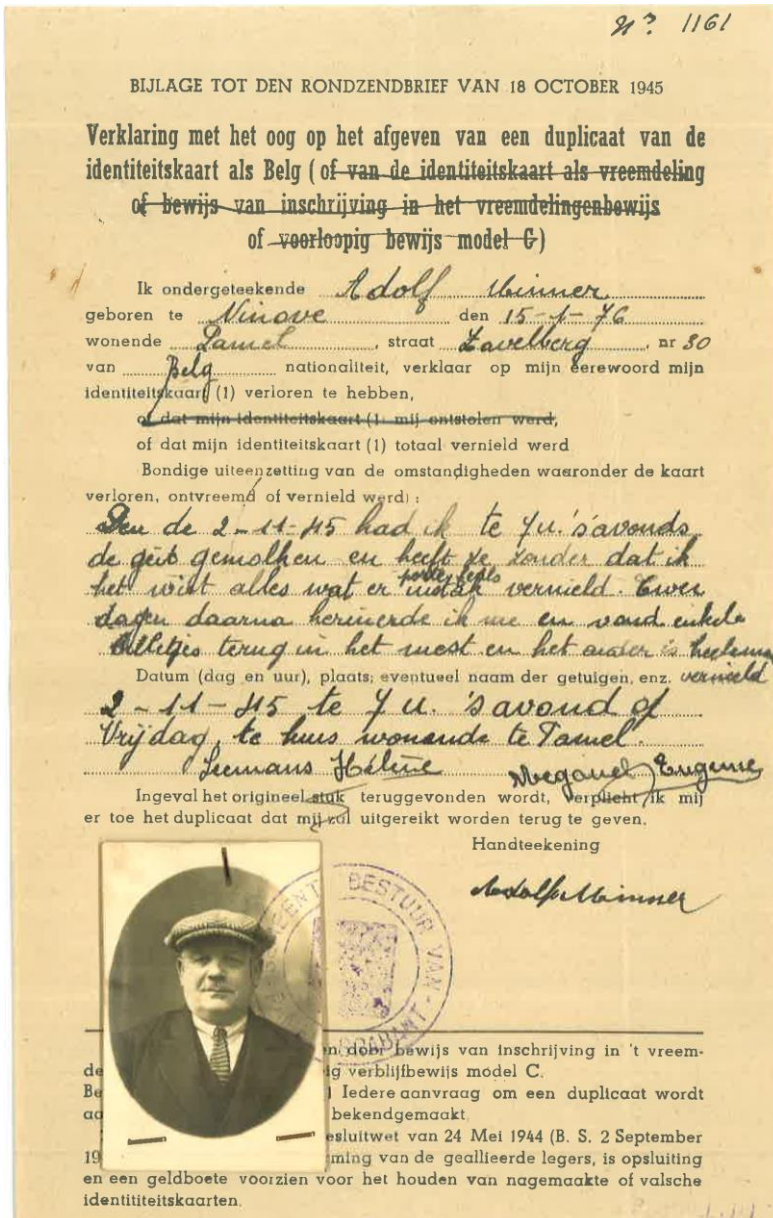 N? 1161
BIJLAGE TOT DEN RONDZENDBRIEF VAN 18 OCTOBER 1945
Verklaring met het oog op het afgeven van een duplicaat van de
identiteitskaart als Belg (of van de identiteitskaart als vreemdeling
of bewijs van inschrijving in het vreemdelingenbewijs
of voorloopig bewijs model G)
Ik ondergeteekende Adolf Minner
geboren te Ninove den 15-1-76
wonende Pamel, straat Zavelberg, nr 30
van Belg nationaliteit, verklaar op mijn eerewoord mijn
identiteitskaart (1) verloren te hebben,
of dat mijn identiteitskaart (1) mij ontstolen werd,
of dat mijn identiteitskaart (1) totaal vernield werd
Bondige uiteenzetting van de omstandigheden waaronder de kaart
verloren, ontvreemd of vernield werd) :
de 2-11-45 had ik te 7 u. 's avonds
de geit gemolken en heeft ze zonder dat ik
het wist alles wat er instak vernield. Twee
dagen daarna herinerde ik me en vond enkele
terug in het mest en het ander is heelemaal
Datum (dag en uur), plaats, eventueel naam der getuigen, enz. vernield
2-11-45 te 7 u. 's avond of
Vrijdag, te huis wonende te Pamel.
Seemans Hélène Eugene
Ingeval het origineel stuk teruggevonden wordt, verplicht ik mij
er toe het duplicaat dat mij zal uitgereikt worden terug te geven.
Handteekening
Adolf Minner
BESTUUR VAN
BRABANT
en door bewijs van inschrijving in 't vreem-
de ig verblijfbewijs model C.
Be Iedere aanvraag om een duplicaat wordt
aa bekendgemaakt
esluitwet van 24 Mei 1944 (B. S. 2 September
19 ming van de geallieerde legers, is opsluiting
en een geldboete voorzien voor het houden van nagemaakte of valsche
identititeitskaarten.